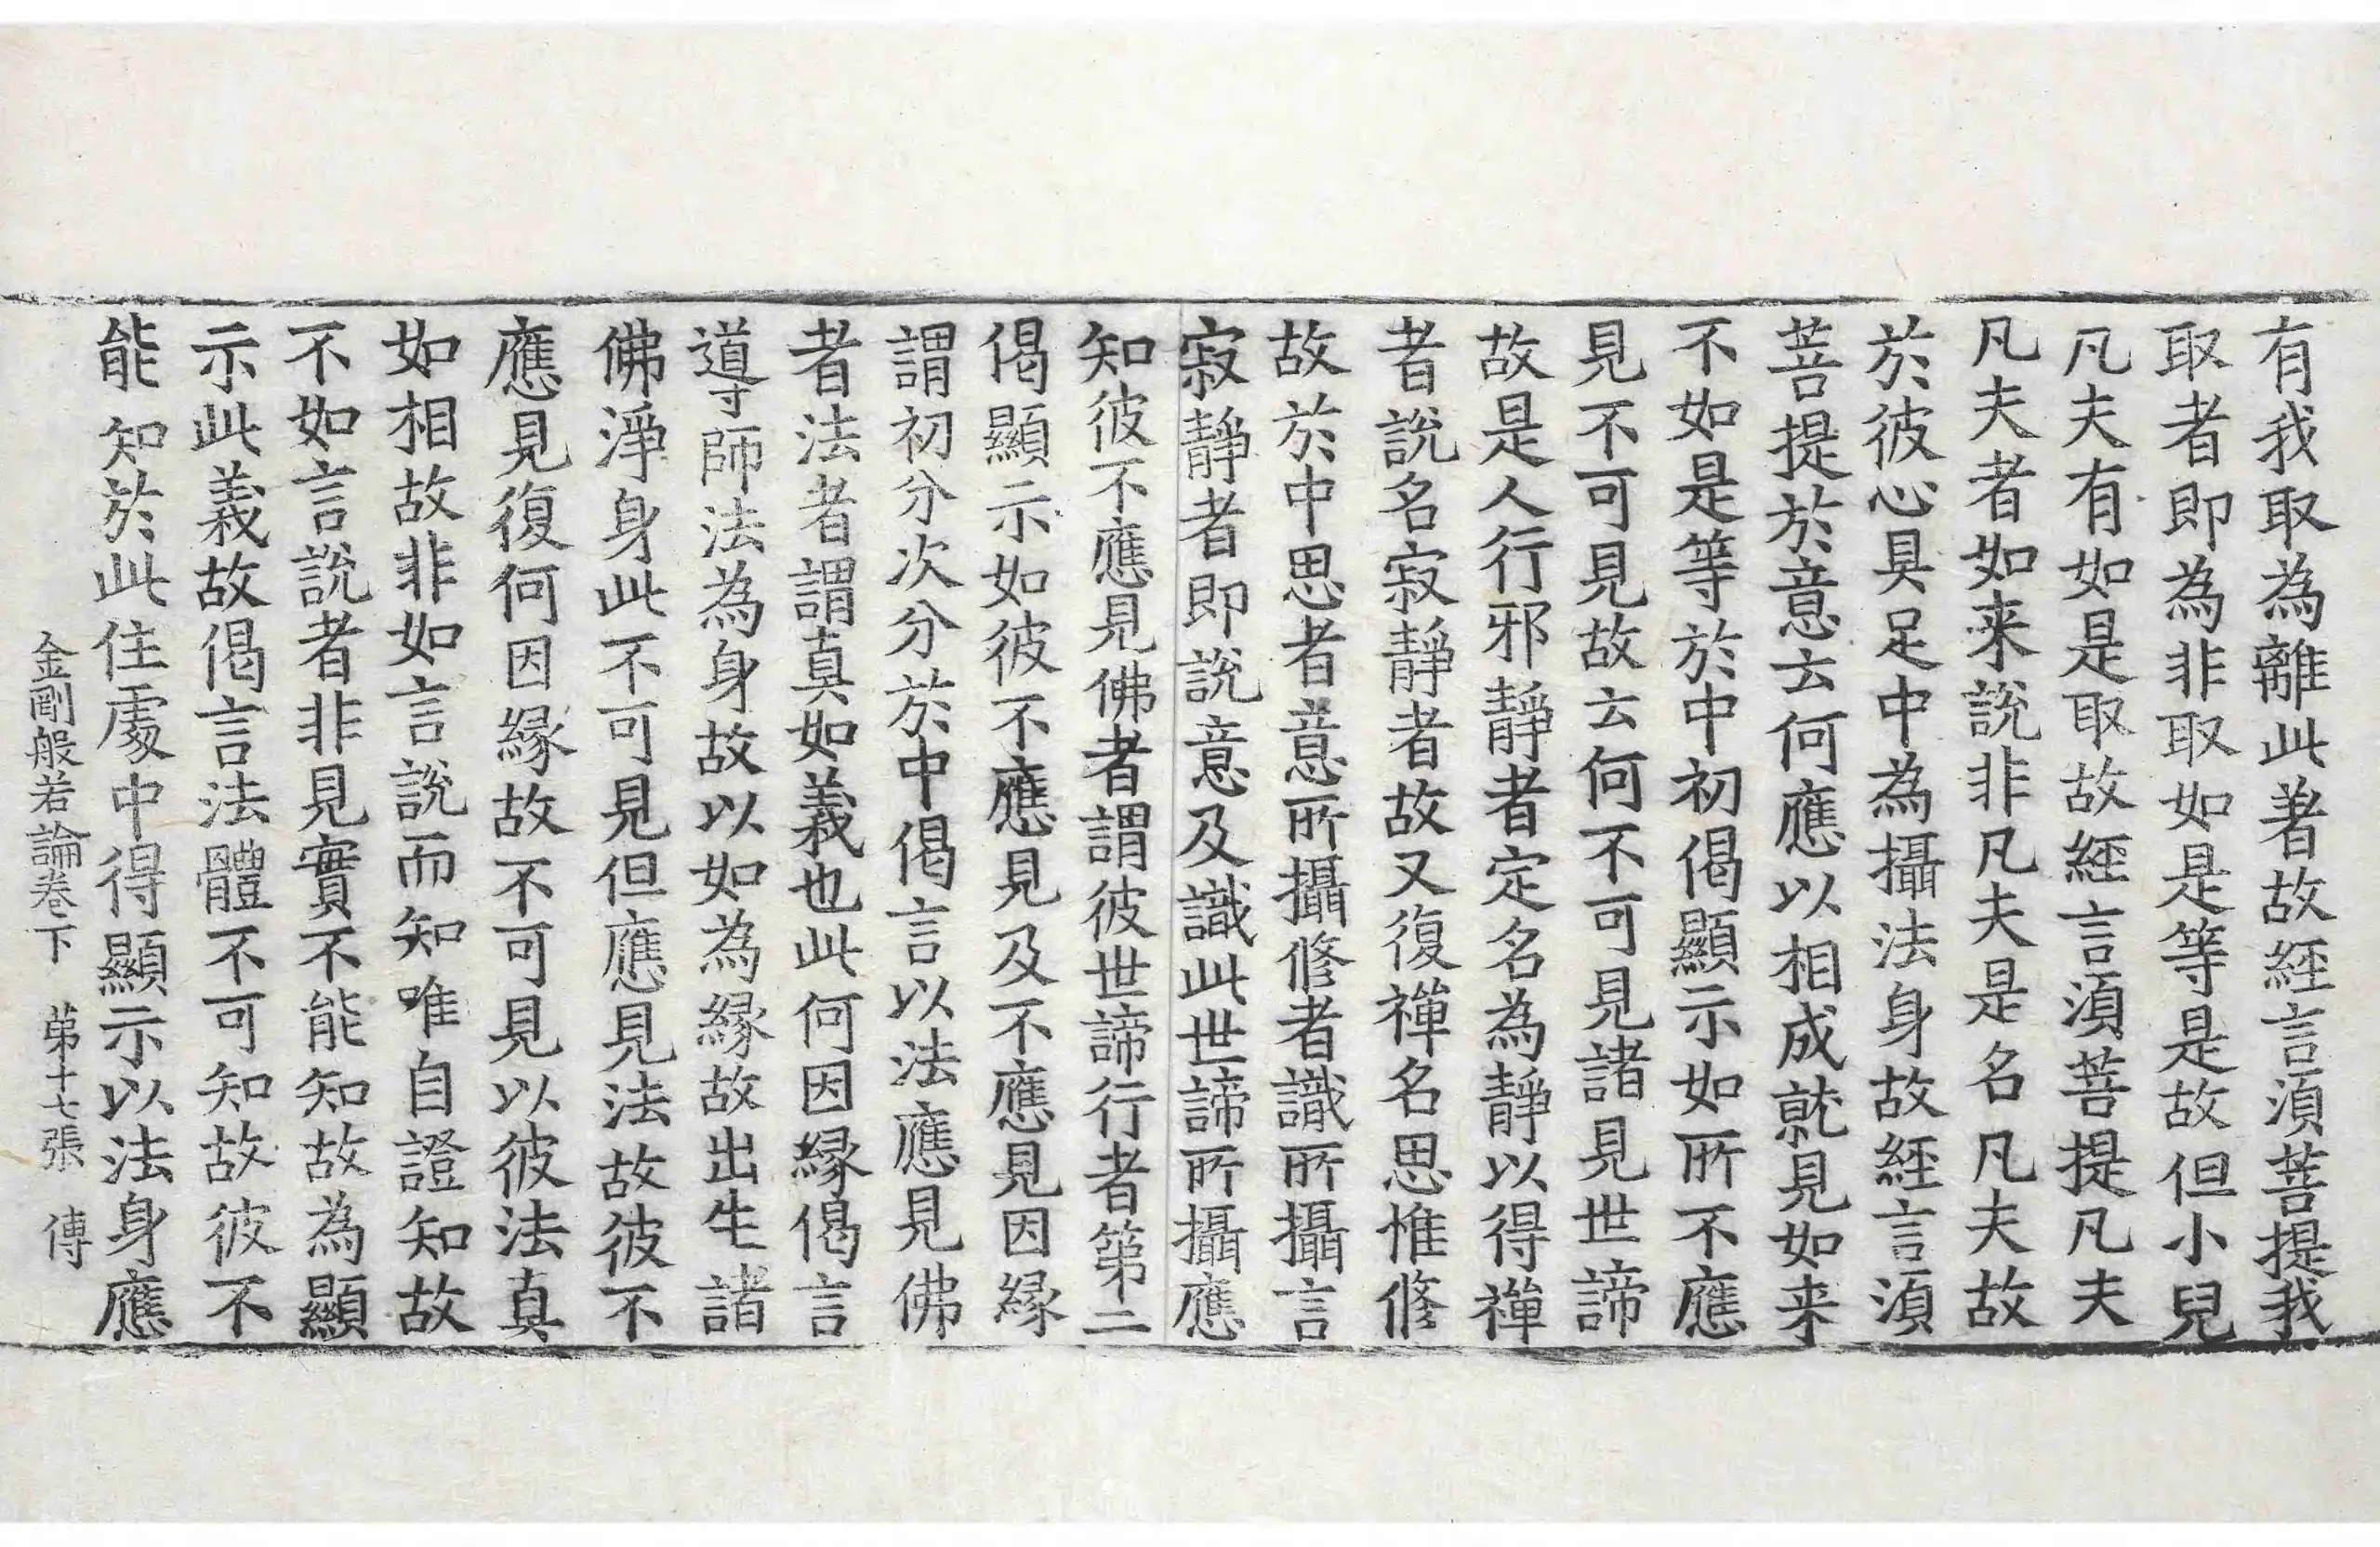 有我取為離此著故經言湏菩提我
取者即為非取如是等是故但小兒
凡夫有如是取故經言湏菩提凡夫
凡夫者如来說非凡夫是名凡夫故
於彼心具足中為攝法身故經言湏
菩提於意云何應以相成就見如来
不如是等於中初偈顯示如所不應
見不可見故云何不可見諸見世諦
故是人行邪靜者定名為靜以得禪
者說名寂靜者故又復禪名思惟修
故於中思者意所攝修者識所攝言
寂靜者即說意及識此世諦所攝應
知彼不應見佛者謂彼世諦行者第二
偈顯示如彼不應見及不應見因縁
謂初分次分於中偈言以法應見佛
者法者謂真如義也此何因縁偈言
導師法為身故以如為縁故出生諸
佛淨身此不可見但應見法故彼不
應見復何因縁故不可見以彼法真
如相故非如言說而知唯自證知故
不如言說者非見實不能知故為顯
示此義故偈言法體不可知故彼不
能知於此住處中得顯示以法身應
金剛般若論卷下 苐十七張 傅